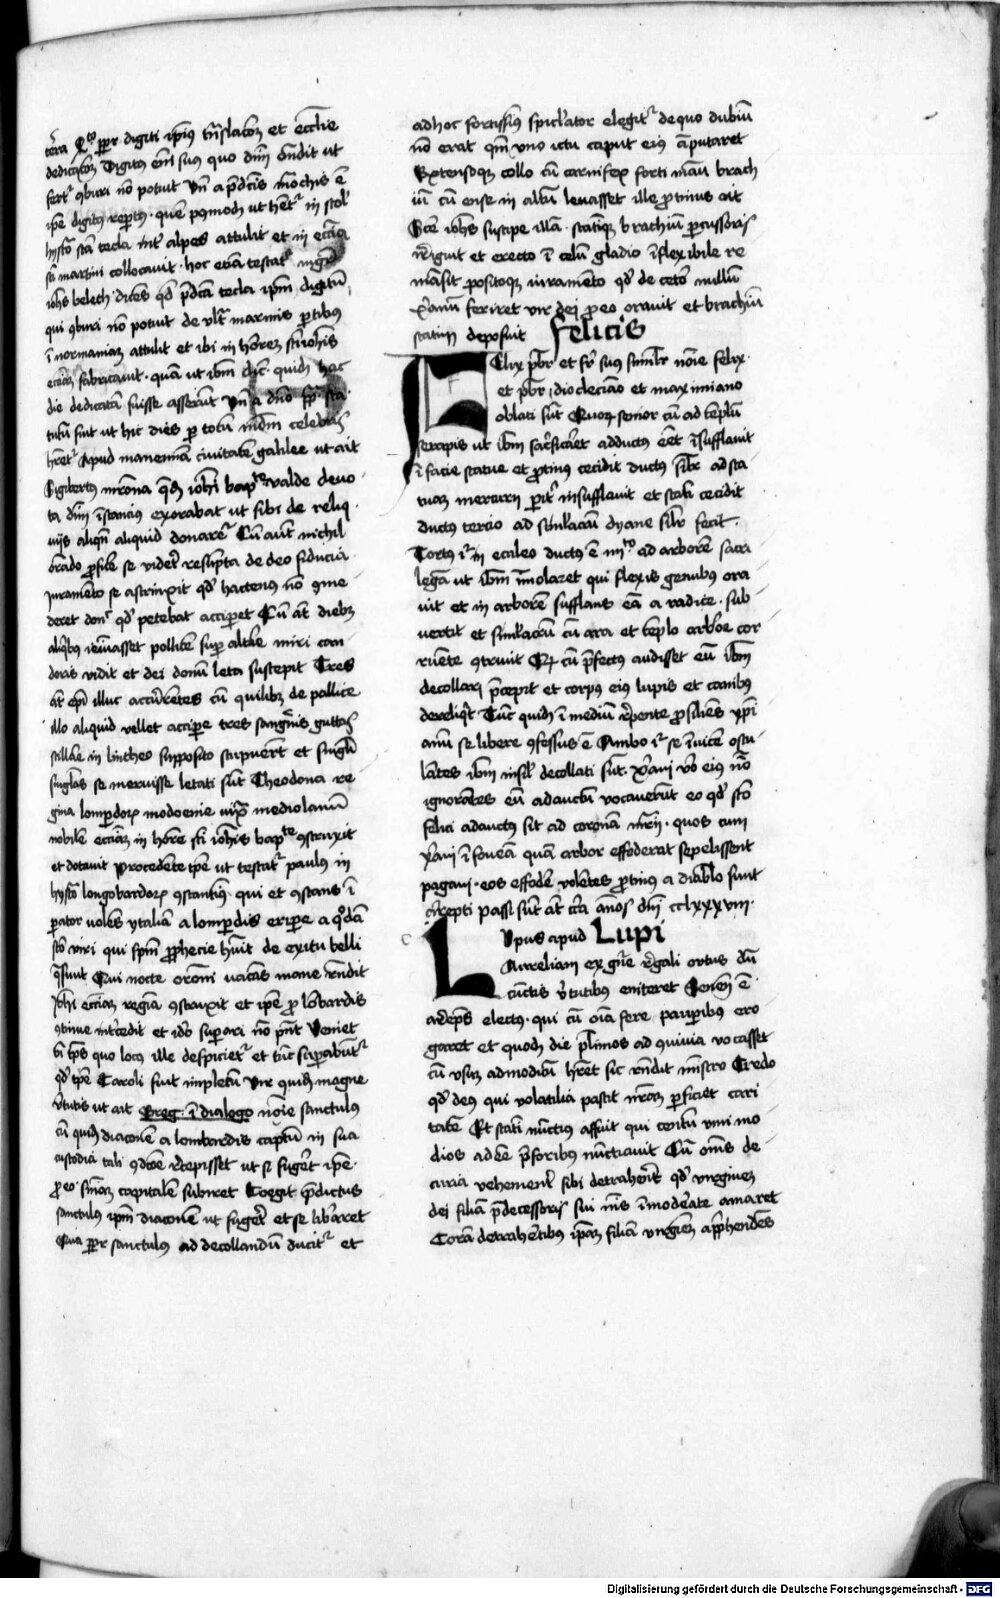 t̄era Qͭo ꝓpr digiti ip̄ius trāslacōꝫ et eccl̄ie
dedicacōꝫ Digitꝰ em̄ suꝰ quo dn̄m oñdit ut
fert᷑ ꝯburi nō potuit Vn̄ a p̄dc̄is mōchis ē
ip̄e digitꝰ reptꝰ · quē pꝰmodū ut het᷑ in scol
hystͥa sc̄a tecla int᷑ alpes attulit et in ecc̄ia
sc̄i martini collocauit · hoc etiā testat᷑ mgr̄
ioh̄s beleth dicēs qd̄ p̄dc̄a tecla ip̄m digitū
qui ꝯburi nō potuit de ult͛ marinis ꝑtibus
ī normaniaꝫ attulit et ibi in honoreꝫ sc̄i ioh̄is
ecc̄iaꝫ fabricauit · quā ut ibm̄ dic̄ · quidē hac
die dedicatā fuisse asserūt Vn̄ a dn̄o pp̄ sta
tutū fuit ut hic dies ꝑ totū mūdū celebrās
het᷑ Apud manennā ciuitatē galilee ut ait
Sigibertus mr̄ona q̄dā ioh̄i bapͭᵉ valde deuo
ta dm̄ īstancius exorabat ut sibi de reliq
uijs aliqn̄ aliquid donaret᷑ Cū aūt nichil
orādo ꝓfic̄e se vider̄ resūpta de deo fiducia
Juramēto se astrinxit qd̄ hactenus nō ꝯme
deret donͨ qd̄ petebat acciperet Cū at̄ diebꝫ
aliqͥbus ieiunasset pollicē suꝑ altare miri can
doris vidit et dei donū leta suscepit Tres
at̄ ep̄i illuc accurrētes cū quilibꝫ de pollice
illo aliquid vellet accipere tres sangͥnis guttas
stillare in lintheo supposito stupuerūt et singl̄i
singl̄as se meruisse letati sūt Theodona re
gina lomꝑdorꝫ modoecie iuxͣ mediolanū
nobilē ecc̄iaꝫ in honore sc̄i ioh̄is bapͭᵉ ꝯstruxit
et dotauit Procedēte tp̄e ut testat᷑ paulus in
hystͥa longobardorꝫ ꝯstantiꝰ · qui et ꝯstans ī
ꝑator volēs ytaliā a lomꝑdis eriꝑe a qͦdā
sc̄o viro qui sp̄m ꝓphecie huit de exitu belli
q̄siuit Qui nocte orōni vacās mane rn̄dit
Joh̄i ecc̄iaꝫ regīa ꝯstruxit et ip̄e ꝓ lōbardis
ꝯtinue int͛cedit et ido suꝑari nō pn̄t Veniet
at̄ tp̄s quo locꝰ ille despiciet᷑ et tūc suꝑabūt᷑
qd̄ tp̄e Caroli fuit impletū Vir quidā magne
v̄tutis ut ait Greg: ī dialogo noīe sanctulus
cū quidā diaconē a lombardis captū in sua
custodia tali ꝯdōe recepisset ut si fuger̄t ip̄e
ꝓ eo sn̄iaꝫ capitalē subiret Coegit p̄dictus
sanctulꝰ ip̄m diaconē ut fuger̄ et se liberaret
Qua ꝓpr sanctulꝰ ad decollandū ducit᷑ et
ad hoc fortissimꝰ spicl̄ator elegit᷑ de quo dubiū
nō erat qn̄ vno ictu caput eiꝰ āputaret
Extensoqꝫ collo cū carnifex forti manu brach
iū cū ense in altū leuasset ille ꝓtinus ait
Sc̄e ioh̄s suscipe illā · statīqꝫ brachiū ꝑcussoris
rḡuit et erecto ī celū gladio īflexibile re
māsit positoqꝫ iuramēto qd̄ de cetō nullū
xp̄ianū feriret vir dei ꝓ eo orauit et brachiū
statim deposuit Felicis
FElix pb̄r et fr̄ suꝰ simil᷑ noīe felix ·
et pb̄r · dioclecīao et maximiano
oblati sūt Quoꝝ senior cū ad tēplū
serapis ut ibm̄ sac͛ficaret adductꝰ eēt īsufflauit
ī facie statue et ꝓtinꝰ cecidit ductꝰ sil᷑r ad sta
tuaꝫ mercurij pit͛ insufflauit et stati cecidit
ductus tercio ad simlacrū dyane sil᷑r fecit ·
Tortꝰ iḡ in eculeo ductꝰ ē iiijͭᵒ ad arborē sacri
legā ut ibm̄ īmolaret qui flexis genubus ora
uit et in arborē sufflans eā a radice sub
uertit et simlacrū cū ara et tēplo arbore cor
ruēte ꝯtriuit Qd̄ cū p̄fectꝰ audisset eū ibm̄
decollari p̄cepit et corpꝰ eiꝰ lupis et canibus
dereliqͥt Tūc quidā ī mediū repente ꝓsiliēs xp̄i
anū se libere ꝯfessus ē Ambo iḡ se īuicē oscu
lātes ibm̄ insil᷑ decollati sūt · Xp̄iani v̄o eiꝰ noē
ignorātes eū adauctū vocauerūt eo qd̄ sc̄o
felici adauctꝰ sit ad coronā mr̄ij · quos cum
xp̄iani ī foueā quā arbor effoderat sepelissent
pagani · eos effodē volētes ꝓtinus a diabl̄o sunt
arrepti passi sūt at̄ cir̄a ānos dn̄i cclxxxvij ·
LUpus apud Lupi
Aureliam ex gn̄e r̄gali ortus dū
cūctis v̄tutibus eniteret Senoni ē
ar̄eps̄ electꝰ · qui cū oīa fere pauꝑibus ero
garet et quodā die pl̄imos ad ꝯuiuia vocasset
cū vsꝫ ad modicū hr̄et sic rn̄dit mīstro Credo
qd̄ deꝰ qui volatilia pascit nr̄aꝫ ꝑficiet cari
tatē Et stati nūctius affuit qui centū vini mo
dios adeē p̄foribus nūctiauit Cū om̄s de
curia vehemēt᷑ sibi detraherēt qd̄ virginē
dei filiā p̄decessoris sui nīs īmoderate amaret
Corā detrahētibus ip̄aꝫ filiā virgīeꝫ app̄hendēs
Digitalisierung gefördert durch die Deutsche Forschungsgemeinschaft - DFG